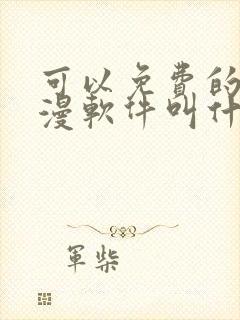 可以免費的
漫軟件叫什
軍柴